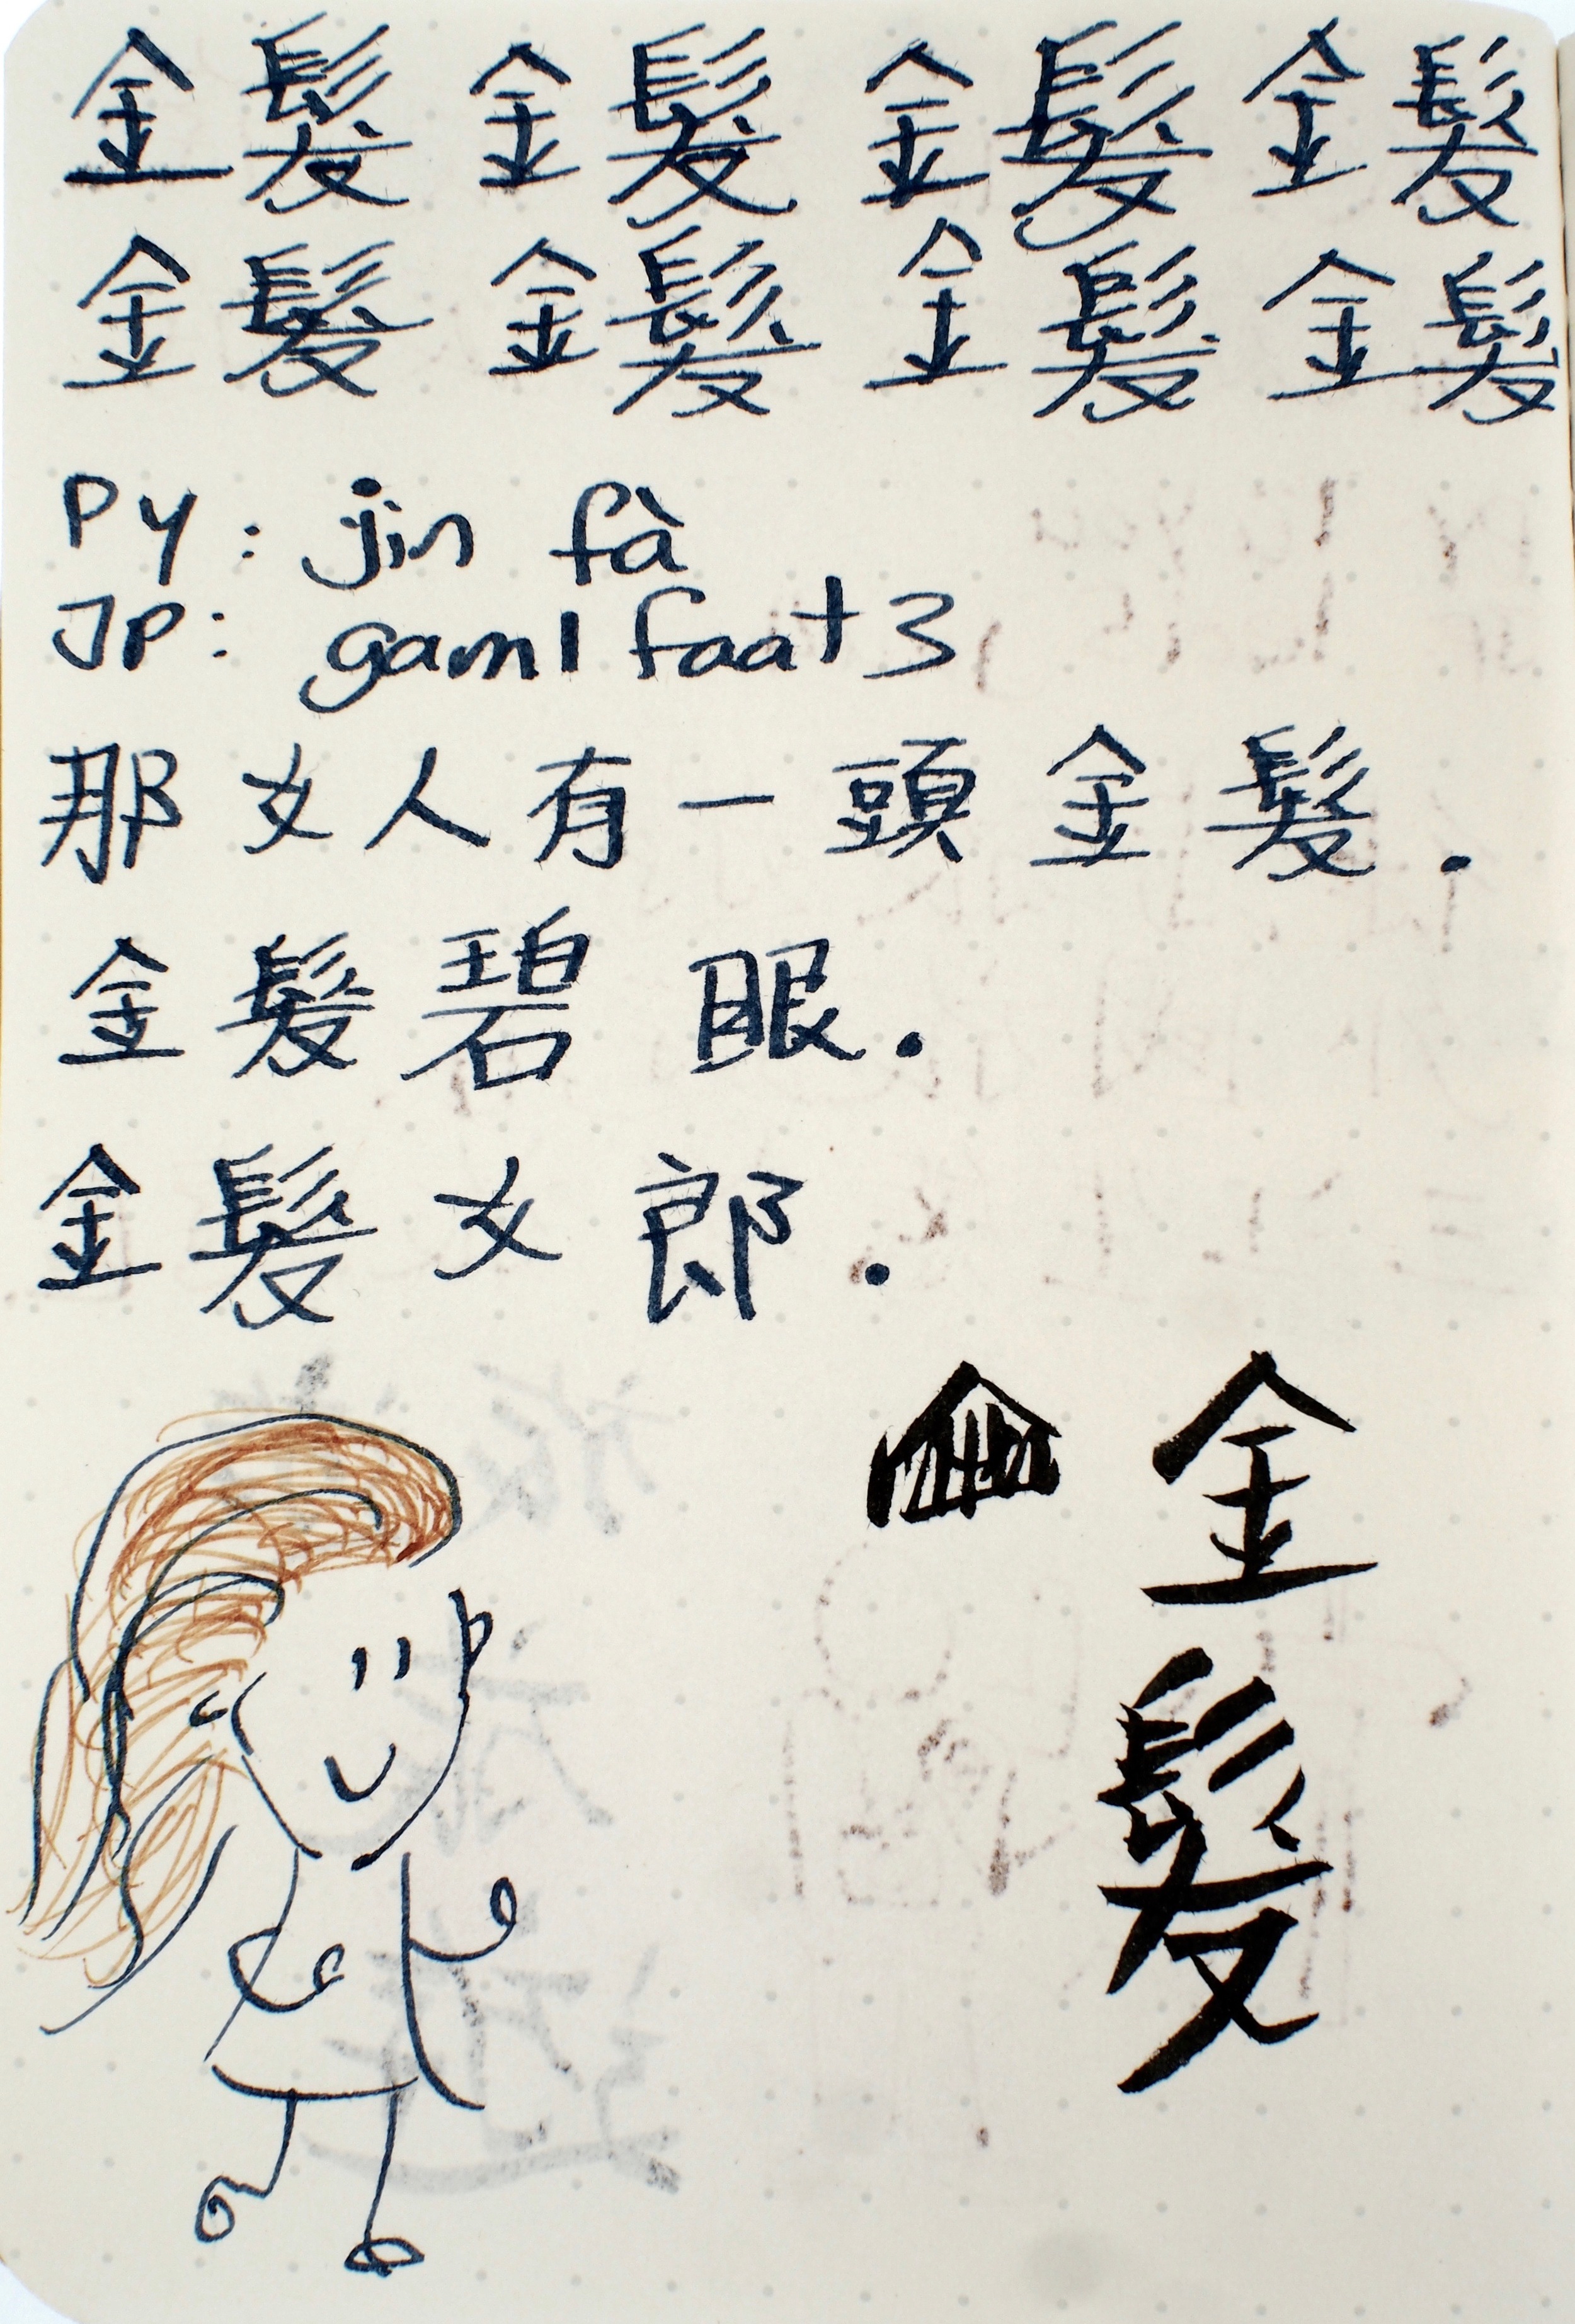 金髮 金髮 金髮 金髮
金髮 金髮 金髮 金髮
PY: jin fà
JP: gam1 faat3
那女人有一頭金髮.
金髮碧眼.
金髮女郎.
金髮